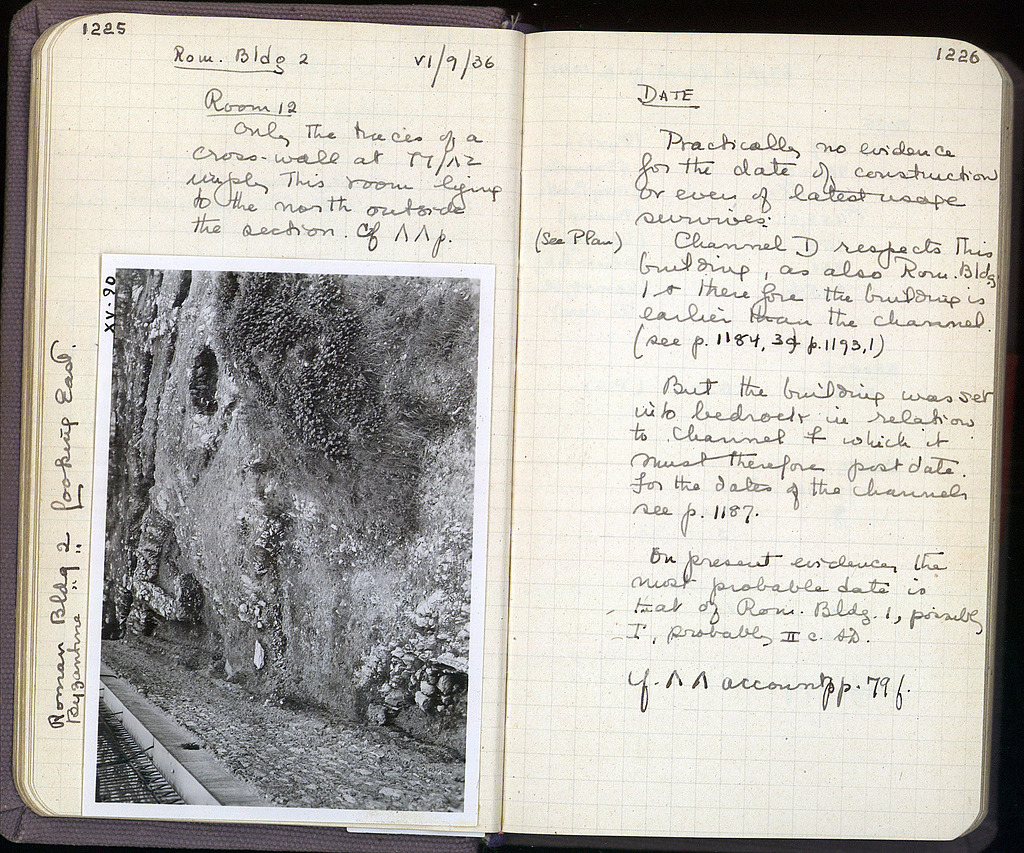 1225
Rom. Bldg 2 VI/9/36
Room 12
Only the traces of a
cross-wall at 77/ΛΖ
imply this room lying
to the north outside
the section. Cf ΛΛ p.
XV-90
Roman Bldg 2 looking East.
Byzantine " 2 "
1226
DATE
Practically no evidence
for the date of construction
or even of latest usage
survives.
(See Plan) Channel D respects this
building, as also Rom. Bldg
1 & therefore the building is
earlier than the channel.
(see p. 1184, p. 1193,1)
But the building was set
into bedrock in relation
to channel which it
must therefore post date.
For the dates of the channels
see p. 1187.
On present evidence, the
most probable date is
that of Rom. Bldg. 1, possibly
I, probably II c. AD.
cf. ΛΛ account pp. 79 f.